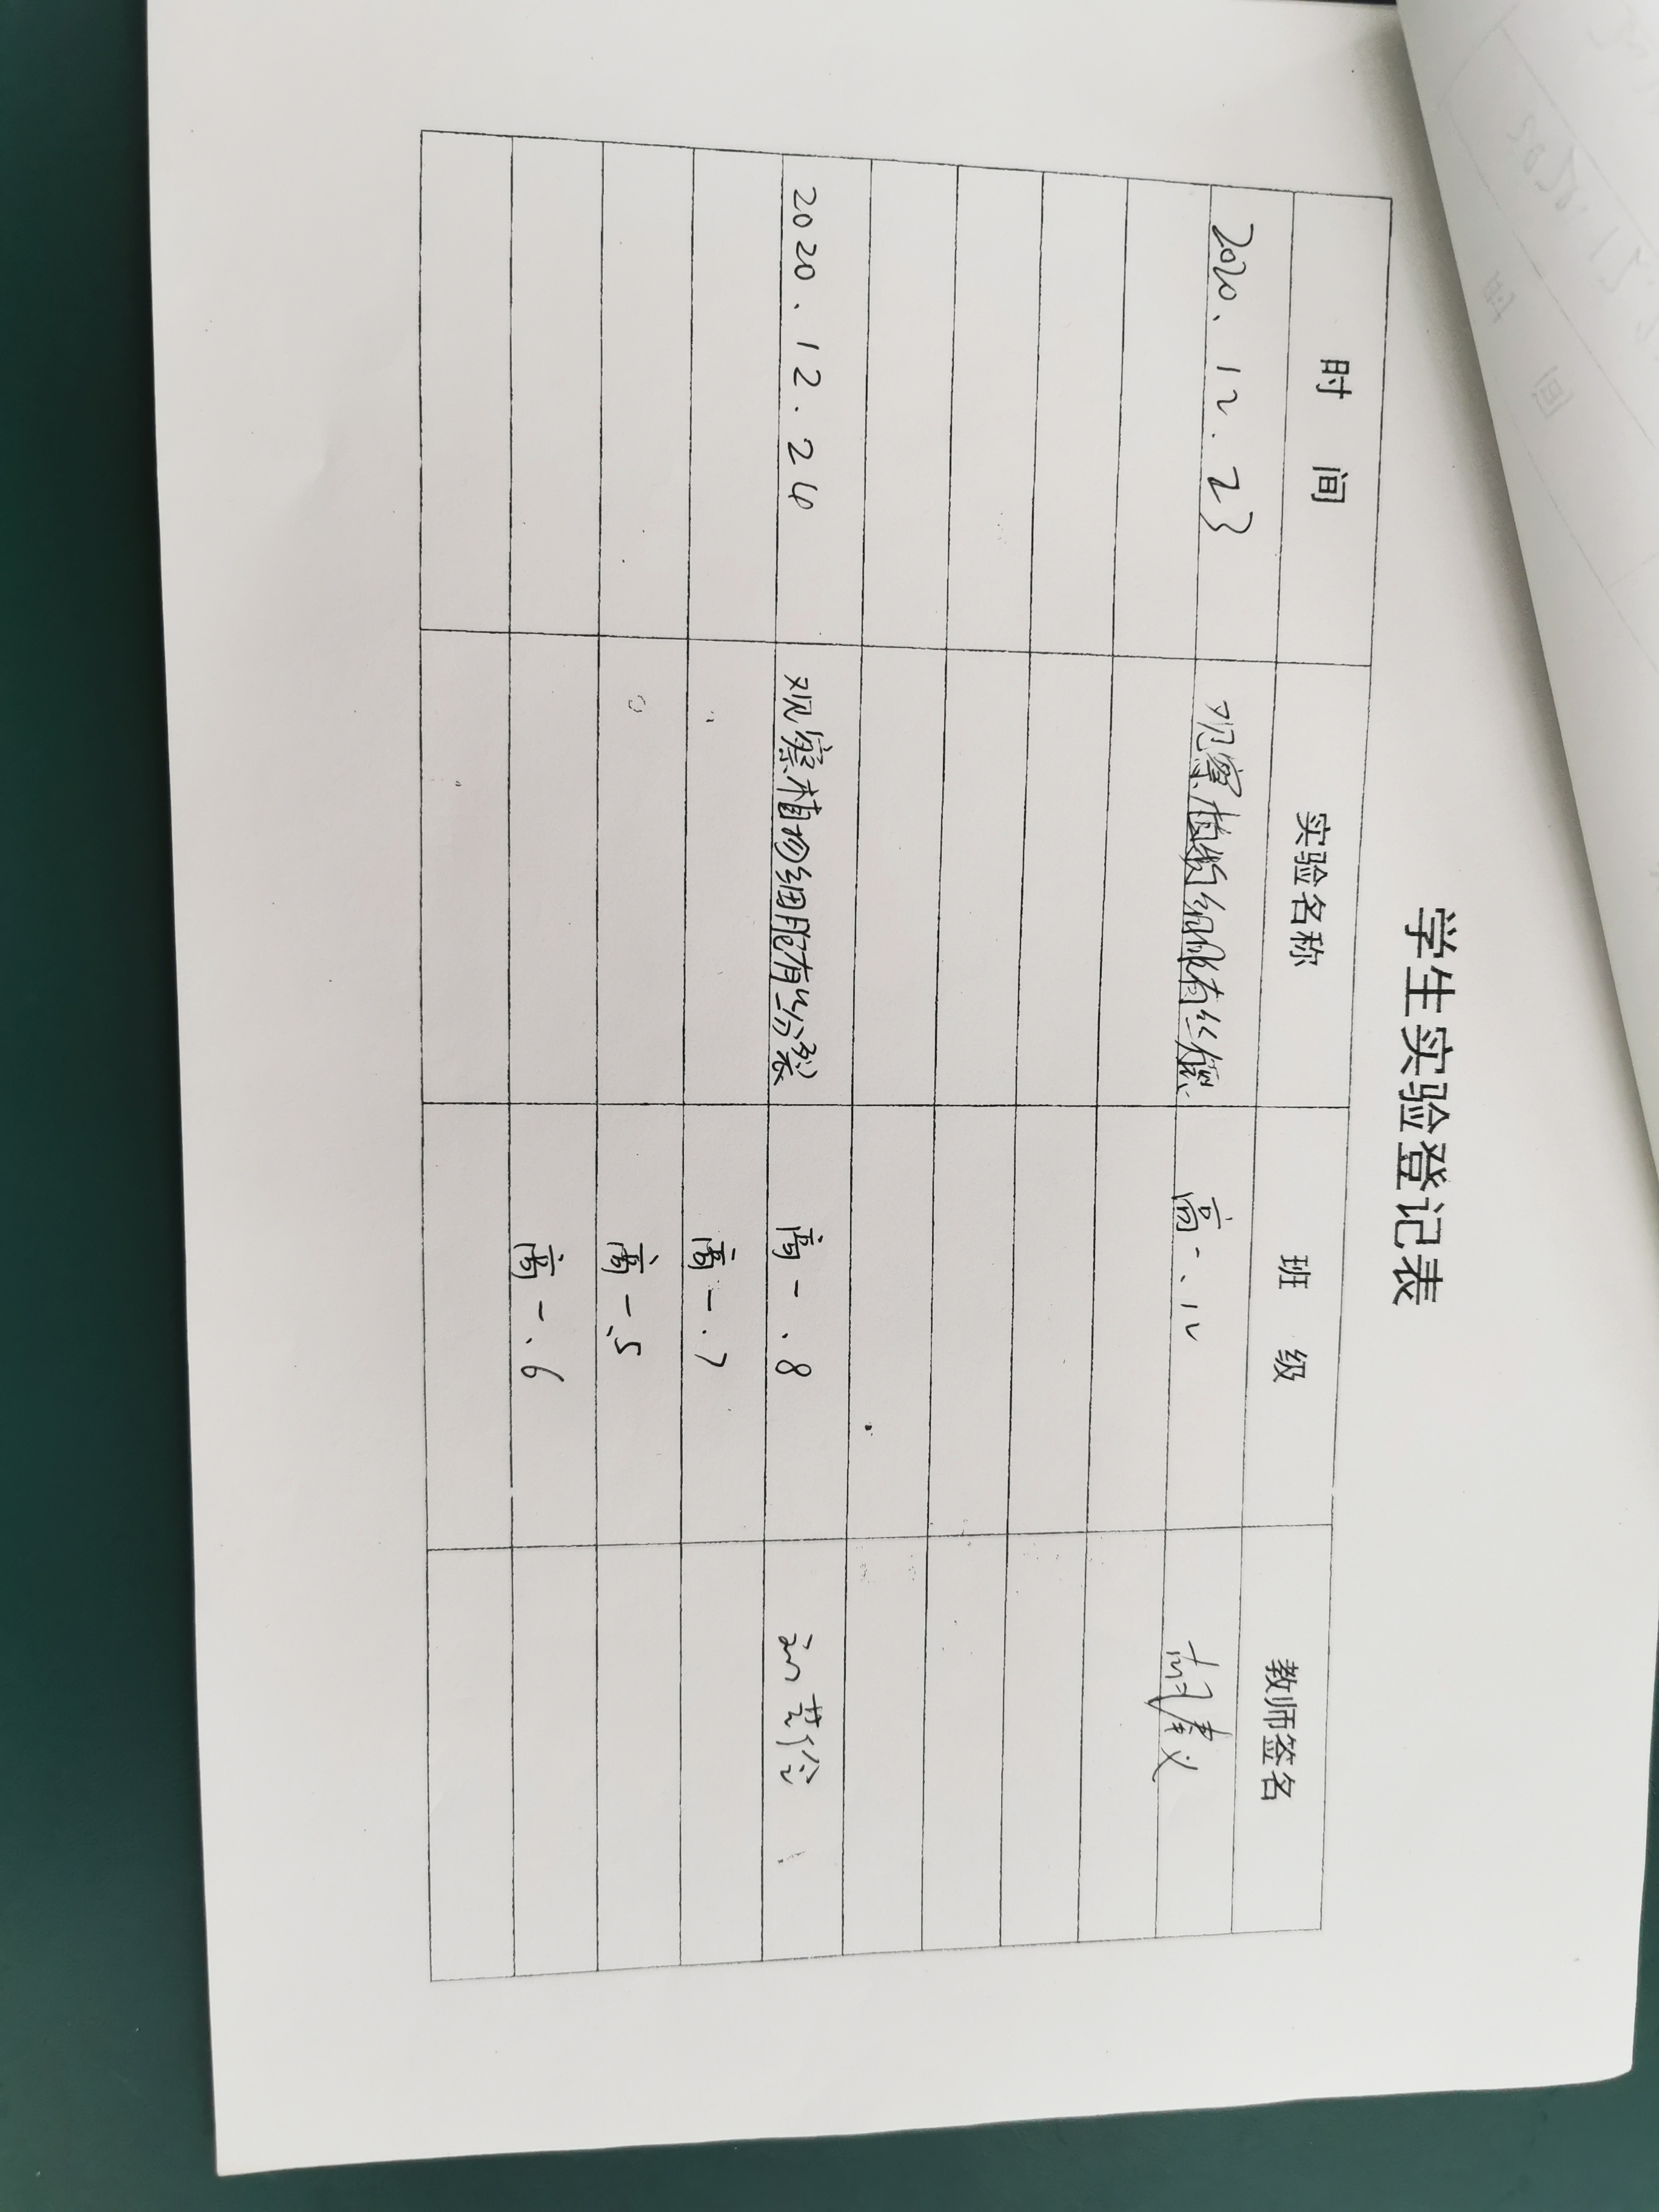 学生实验登记表
时 间 实验名称 班 级 教师签名
2020.12.23 观察植物细胞有丝 高一.12
2020.12.24 观察植物细胞有丝分裂 高一.8
高一.7
高一.5
高一.6